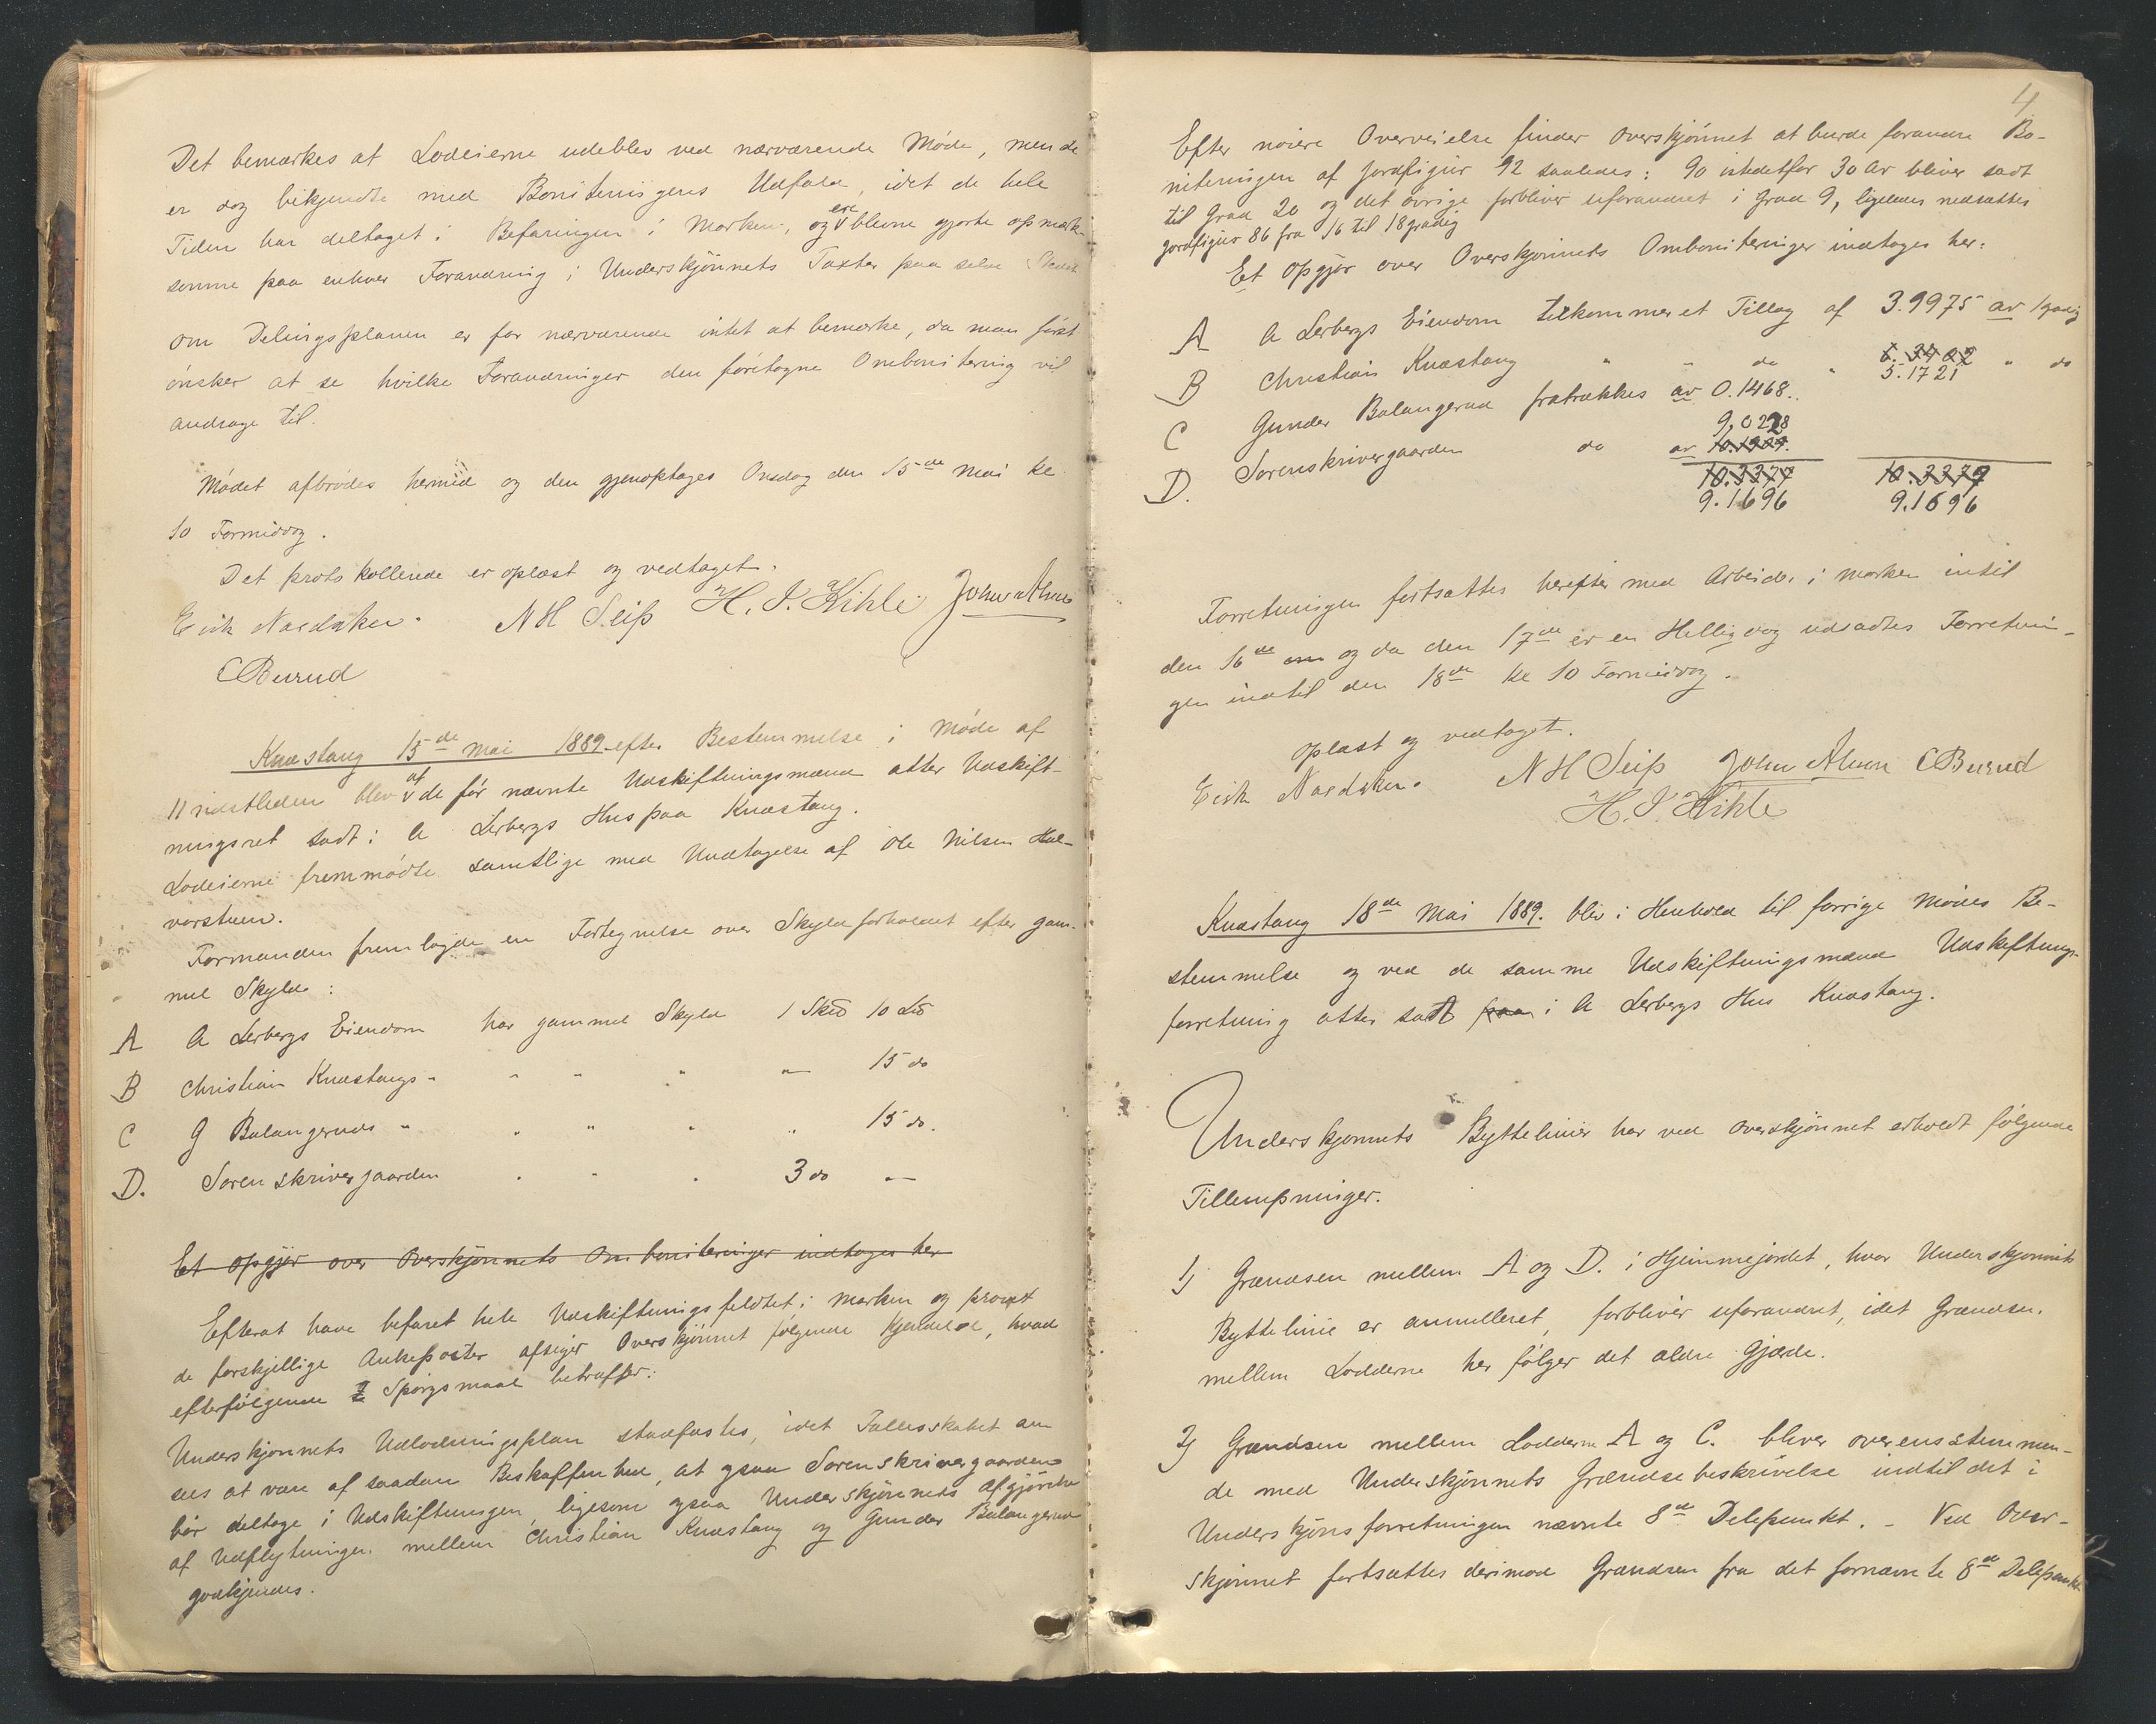 Det bemærkes at Lodeierne udeblev ved nærværende Møde, men de
er dog bekjendte med Boniteringens Udfald, idet de hele
Tiden har deltaget i Befaringen i Marken, og ere blevne gjorte opmærk-
somme paa enhver Forandring i Underskjønnets Taxter paa selve Stedet
Om Delingsplanen er for nærværende intet at bemærke, da man først
ønsker at se hvilke Forandringer den foretagne Ombonitering vil
andrage til.
Mødet afbrødes hermed og den gjenoptages Onsdag den 15de Mai kl
10 Formiddag.
Det protokollerede er oplæst og vedtaget.
Erik Nordaker. N H Seip H. J. Kihle John Alm
C Burud
Knæstang 15de Mai 1889 efter Bestemmelse i Møde af
11 næstleden blev af de før nævnte Udskiftningsmænd atter Udskift-
ningsret sadt i A Lerbergs Hus paa Knæstang.
Lodeierne fremmødte samtlige med Undtagelse af Ole Nilsen Hal-
vorstuen.
Formanden fremlagde en Fortegnelse over Skyldforholdet efter gam-
mel Skyld:
A A Lerbergs Eiendom har gammel Skyld 1 Skd 10 Ld
B Christian Knæstangs " " " " " 15 do
C G Bulangeruds " " " " " 15 do.
D. Sorenskrivergaarden " " " 3 do —
Et opgjør over Overskjønnets Omboniteringer indtages her
Efterat have befaret hele Udskiftningsfeldtet i Marken og prøvet
de forskjellige Ankeposter afsiger Overskjønnet følgende Kjendelse, hvad
efterfølgende 2 Spørgsmaal betræffer:
Underskjønnets Udlodningsplan stadfæstes, idet Fællesskabet an-
sees at være af saadan Beskaffenhed, at ogsaa Sorenskrivergaarden
bør deltage i Udskiftningen, ligesom ogsaa Underskjønnets Afgjørelse
af Udflytningen mellem Christian Knæstang og Gunder Bulangerud
godkjendes.
4
Efter nøiere Overveielse finder Overskjønnet at burde forandre Bo-
niteringen af Jordfigur 92 saaledes: 90 istedetfor 30 Ar bliver sadt
til Grad 20 og det øvrige forbliver uforandret i Grad 9, ligeledes nedsættes
Jordfigur 86 fra 16 til 18 gradig
Et Opgjør over Overskjønnets Omboniteringer indtages her:
A A Lerbergs Eiendom tilkommer et Tillæg af 3.9975 ar 1 gradig
B Christian Knæstang " " do " 6.3402 " do
5.1721
C Gunder Bulangerud fratrækkes ar 0.1468..
9,0228
D. Sorenskrivergaarden do ar 10.1909.
10.3377 10.3379
9.1696 9.1696
Forretningen fortsættes herefter med Arbeide i Marken indtil
den 16de om og da den 17de er en Helligdag udsadtes Forretnin-
gen indtil den 18de kl 10 Formiddag.
Oplæst og vedtaget.
Erik Nordaker. N H Seip John Alm C Burud
H. J. Kihle
Knæstang 18de Mai 1889. blev i Henhold til forrige Mødes Be-
stemmelse og ved de samme Udskiftningsmænd Udskiftnings-
forretning atter sadt paa i A Lerbergs Hus Knæstang.
Underskjønnets Byttelinier har ved Overskjønnet erholdt følgende
Tillempninger.
1) Grændsen mellem A og D. i Hjemmejordet, hvor Underskjønnets
Byttelinie er annulleret, forbliver uforandret, idet Grændsen
mellem Lodderne her følger det ældre Gjærde.
2) Grændsen mellem Lodderne A og C. bliver overensstemmen-
de med Underskjønnets Grændsebeskrivelse indtil det i
Underskjønsforretningen nævnte 8de Delepunkt. - Ved Over-
skjønnet fortsættes derimod Grændsen fra det fornævnte 8de Delepunkt